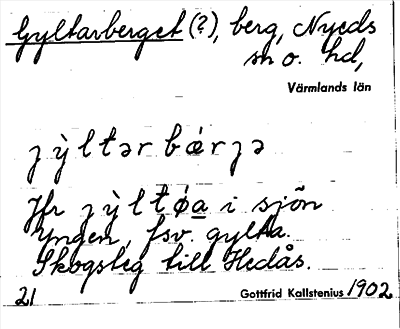 Gyltarberget (?), berg, Nyeds
sn o. hd,
Värmlands län
ȷ ỳ l t ə r b ǽ r ȷ ə
Jfr ȷ ỳ l t ǿ a i sjön
Yngen, fsv. gylta.
Skogsteg till Hedås.
21 Gottfrid Kallstenius 1902